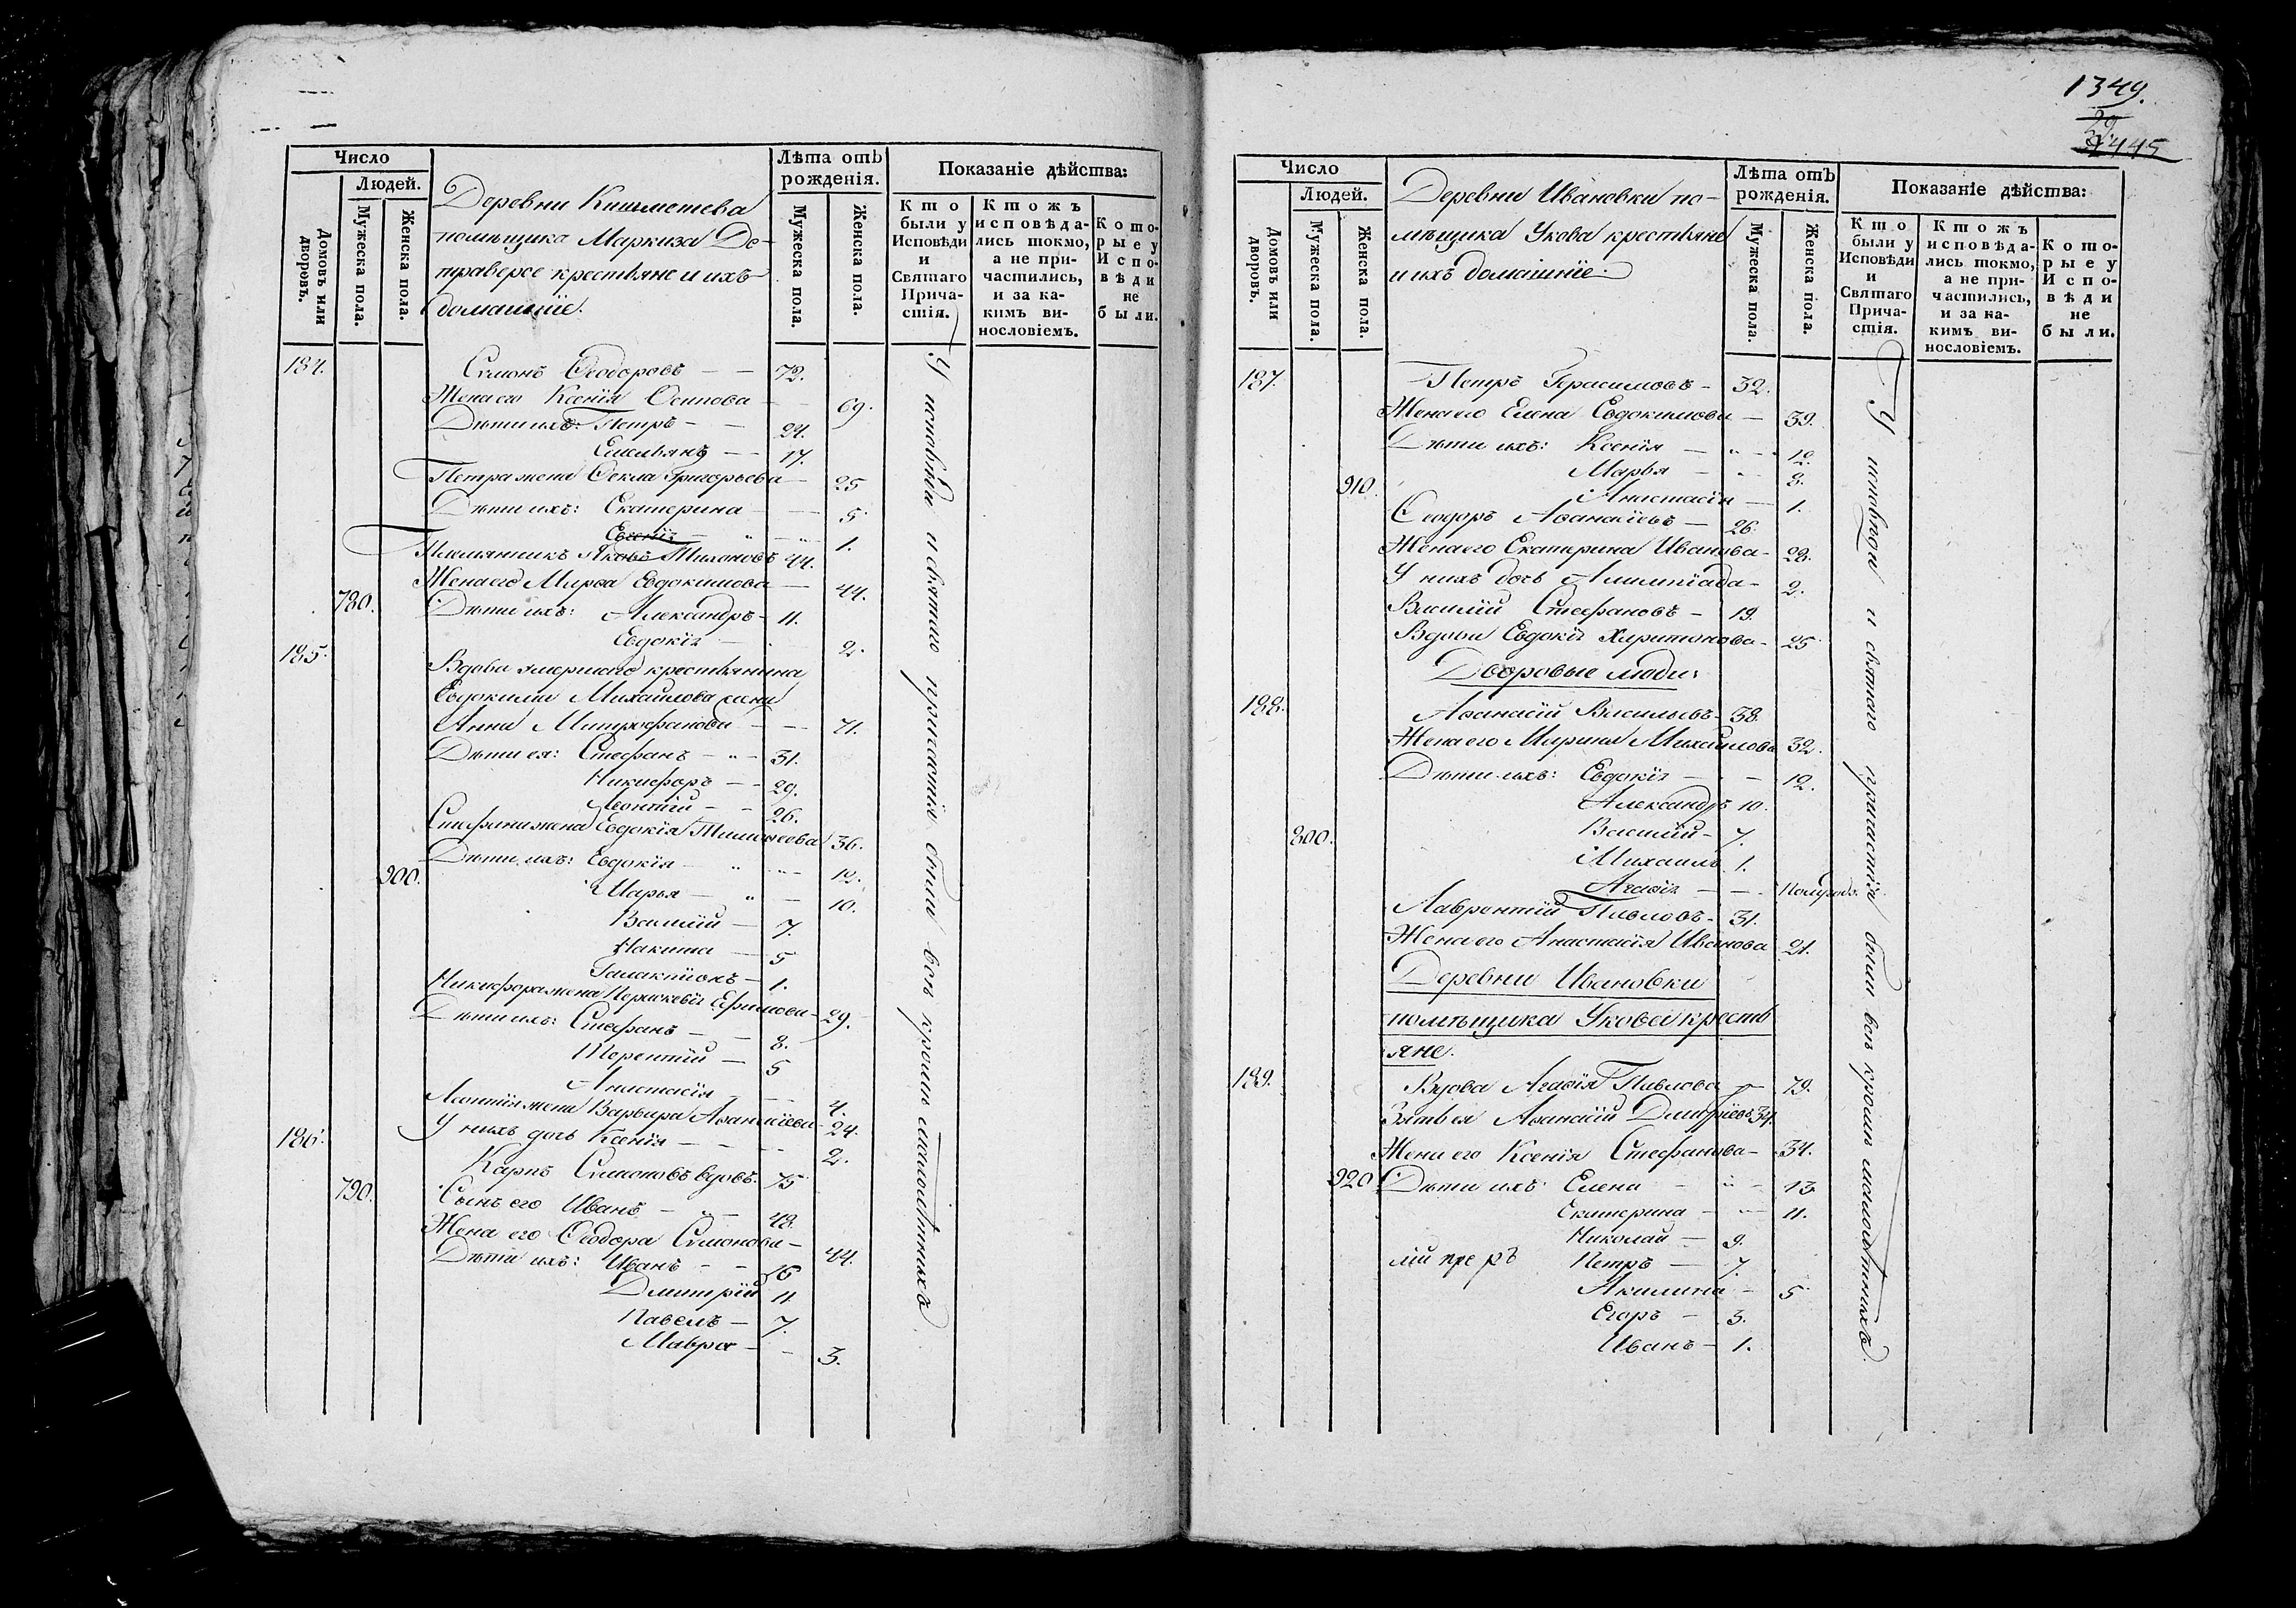 Число
Людей.
Домовъ или дворовъ.
Мужеска пола.
Женска пола.
Деревни Кишметева
помѣщика Маркиза Де-
траверсе крестьяне и ихъ
домашніе.
Лѣта отъ рожденія.
Мужеска пола.
Женска пола.
Показаніе дѣйства:
Кто были у Исповѣди и Святаго Причастія.
Ктожъ исповѣдались токмо, а не причастились, и за какимъ винословіемъ.
Которые у Исповѣди не были.
184. Симонъ Ѳеодоровъ — — 72.
Жена его Ксенія Осипова — 69.
Дѣти ихъ: Петръ — — 24.
Емельянъ — — 17.
Петра жена Ѳекла Григорьева — 25
Дѣти ихъ: Екатерина — — 5.
Евгенія — 1.
Племянникъ Яковъ Тихоновъ 44.
Жена его Марѳа Евдокимова — 44.
780. Дѣти ихъ: Александръ — 11.
Евдокія — 2.
185. Вдова умершаго крестьянина
Евдокима Михайлова жена
Анна Митрофанова — — 71.
Дѣти ея: Стефанъ — — 31.
Никифоръ — — 29.
Леонтій — — 26.
Стефана жена Евдокія Тимоѳеева 36.
Дѣти ихъ: Евдокія — 12.
900. Марья — — 10.
Василій — 7.
Никита — 5
Галактіонъ — 1.
Никифора жена Параскевія Ефимова — 29.
Дѣти ихъ: Стефанъ — 8.
Терентій — 5
Анастасія — 4.
Леонтія жена Варвара Аѳанасіева — 24.
У нихъ дочь Ксенія — — 2.
186. Карпъ Симоновъ вдовъ. 75
790. Сынъ его Иванъ — — 48.
Жена его Ѳеодора Симонова — 44.
Дѣти ихъ: Иванъ — — 16
Дмитрій 11
Павелъ — 7.
Мавра — — 3.
У исповѣди и святаго причастія были всѣ кромѣ малолѣтнихъ
1349.
445
Число
Людей.
Домовъ или дворовъ.
Мужеска пола.
Женска пола.
Деревни Ивановки по-
мѣщика Укова крестьяне
и ихъ домашніе.
Лѣта отъ рожденія.
Мужеска пола.
Женска пола.
Показаніе дѣйства:
Кто были у Исповѣди и Святаго Причастія.
Ктожъ исповѣдались токмо, а не причастились, и за какимъ винословіемъ.
Которые у Исповѣди не были.
187. Петръ Герасимовъ — 32.
Жена его Елена Евдокимова — 39.
Дѣти ихъ: Ксенія — 12.
Марья — 8.
910. Анастасія — 1.
Ѳеодоръ Аѳанасіевъ — 26.
Жена его Екатерина Иванова — 28.
У нихъ дочь Алимпіада — 2.
Василій Стефановъ — 19.
Вдова Евдокія Харитонова — 25
Дворовые люди:
188. Аѳанасій Васильевъ — 38.
Жена его Марина Михайлова 32.
Дѣти ихъ: Евдокія — — 12.
Александръ 10.
800. Василій — 7.
Михаилъ 1.
Агаѳія — — Полугода.
Лаврентій Павловъ — 31.
Жена его Анастасія Иванова 21.
Деревни Ивановки
помѣщика Укова кресть
яне.
189. Вдова Агаѳія Павлова — 79.
Зять ея Аѳанасій Дмитріевъ 34.
Жена его Ксенія Стефанова — 34.
920 Дѣти ихъ: Елена — — 13
Екатерина — — 11.
Николай — 9.
Петръ — 7.
Акилина — 5
Егоръ — 3.
Иванъ — 1.
У исповѣди и святаго причастія были всѣ кромѣ малолѣтнихъ.